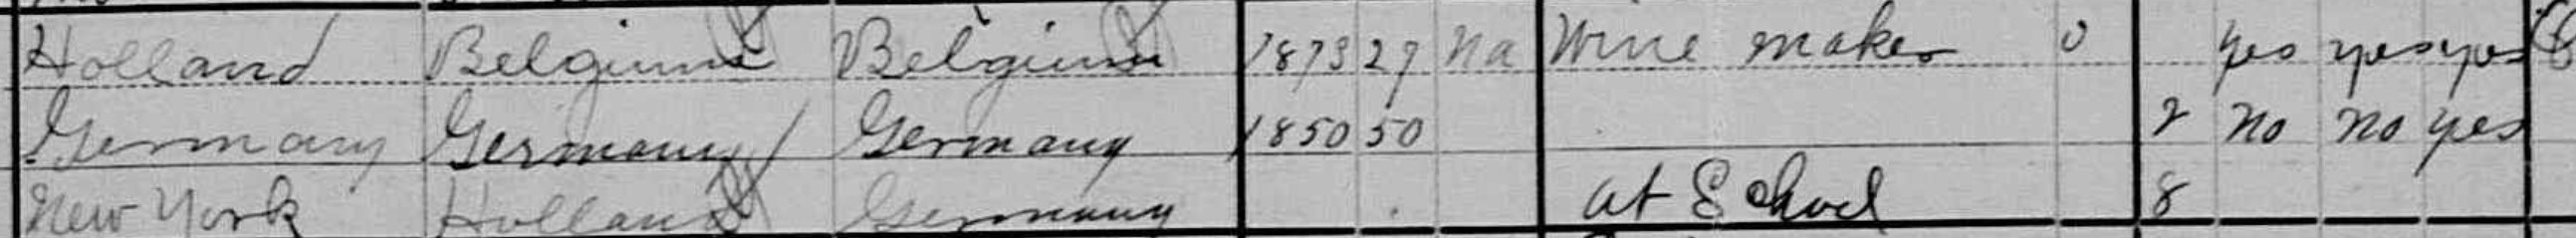 Holland Belgium Belgium 1873 27 Na Wine maker 0 yes yes yes
Germany Germany Germany 1850 50 2 no no yes
New York Holland Germany at School 8